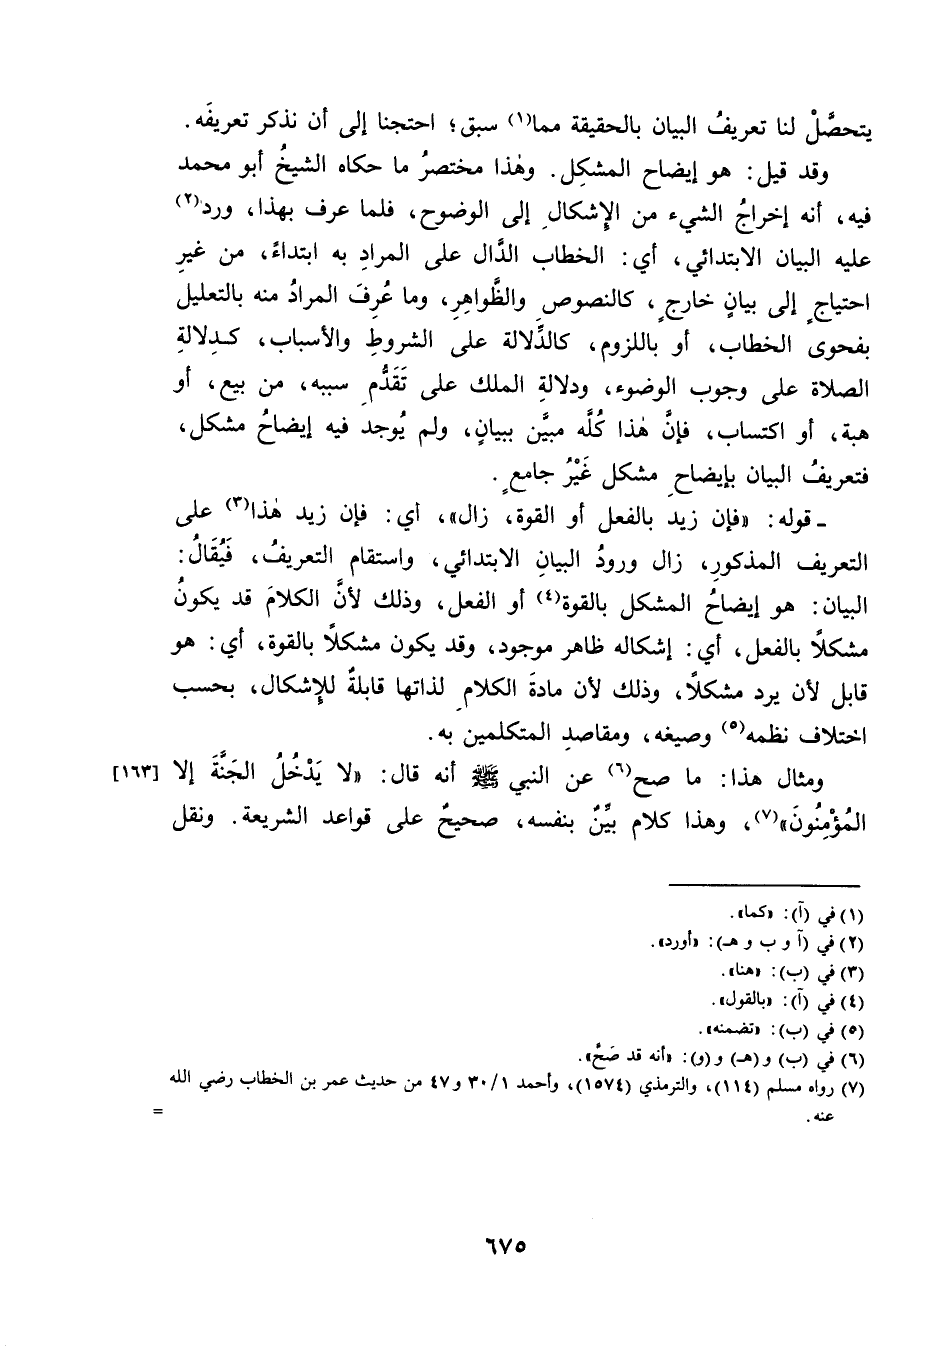 يتحصَّلْ لنا تعريفُ البيان بالحقيقة مما(١) سبق؛ احتجنا إلى أن نذكر تعريفَه.
وقد قيل: هو إيضاح المشكِل. وهٰذا مختصرُ ما حكاه الشيخُ أبو محمد
فيه، أنه إخراجُ الشيء من الإِشكالِ إلى الوضوح، فلما عرف بهذا، ورد(٢)
عليه البيان الابتدائي، أي: الخطاب الدَّال على المرادِ به ابتداءً، من غيرِ
احتياجٍ إلى بيانٍ خارجٍ، كالنصوصِ والظَّواهِرِ، وما عُرِفَ المرادُ منه بالتعليل
بفحوى الخطاب، أو باللزوم، كالدِّلالة على الشروطِ والأسباب، كـدِلالةِ
الصلاة على وجوب الوضوء، ودلالةِ الملك على تَقَدُّمِ سببه، من بيع، أو
هبة، أو اكتساب، فإنَّ هٰذا كُلَّه مبيَّن ببيانٍ، ولم يُوجد فيه إيضاحُ مشكل،
فتعريفُ البيان بإيضاحِ مشكل غَيْرُ جامعٍ.
ـ قوله: «فإن زيد بالفعل أو القوة، زال»، أي: فإن زيد هٰذا(٣) على
التعريف المذكورِ، زال ورودُ البيانِ الابتدائي، واستقام التعريفُ، فَيُقَالُ:
البيان: هو إيضاحُ المشكل بالقوة(٤) أو الفعل، وذلك لأنَّ الكلامَ قد يكونُ
مشكلًا بالفعل، أي: إشكاله ظاهر موجود، وقد يكون مشكلًا بالقوة، أي: هو
قابل لأن يرد مشكلًا، وذلك لأن مادةَ الكلامِ لذاتها قابلةٌ للإِشكال، بحسب
اختلاف نظمه(٥) وصيغه، ومقاصدِ المتكلمين به.
ومثال هذا: ما صح(٦) عن النبي ﷺ أنه قال: «لا يَدْخُلُ الجَنَّةَ إلا [١٦٣]
المُؤْمِنُونَ»(٧)، وهذا كلام بيِّنٌ بنفسه، صحيحٌ على قواعد الشريعة. ونقل
(١) في (آ): «كما».
(٢) في (آ و ب و هـ): «أورد».
(٣) في (ب): «هنا».
(٤) في (آ): «بالقول».
(٥) في (ب): «تضمنه».
(٦) في (ب) و(هـ) و(و): «أنه قد صَحَّ».
(٧) رواه مسلم (١١٤)، والترمذي (١٥٧٤)، وأحمد ٣٠/١ و٤٧ من حديث عمر بن الخطاب رضي الله
عنه. =
٦٧٥